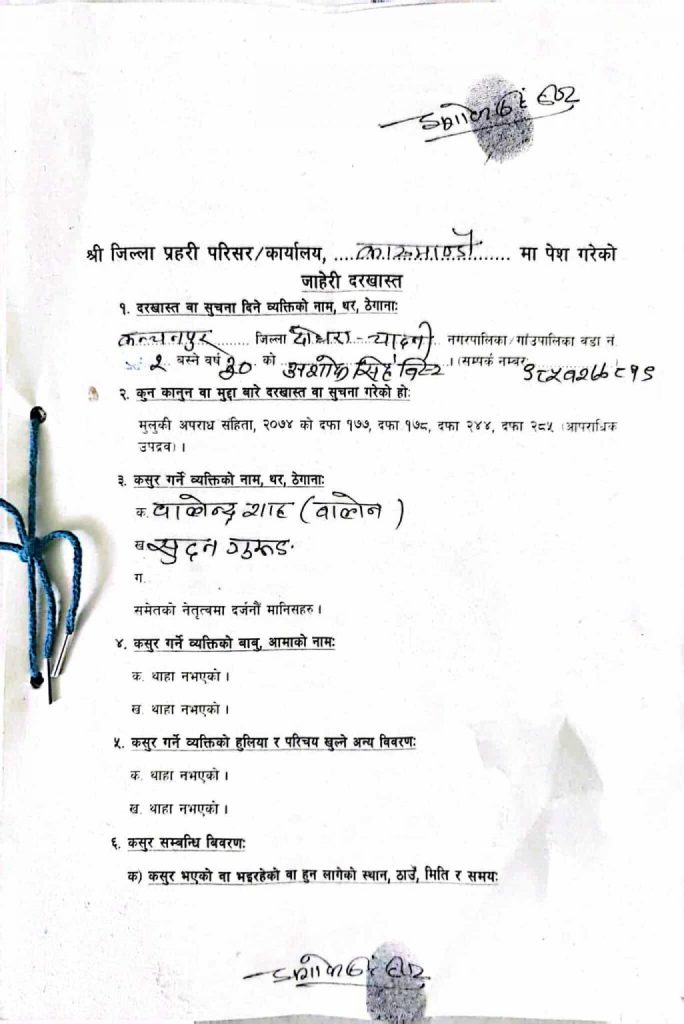 श्री जिल्ला प्रहरी परिसर/कार्यालय, ....काठमाण्डौ....... मा पेश गरेको
जाहेरी दरखास्त
१. दरखास्त वा सुचना दिने व्यक्तिको नाम, थर, ठेगानाः
कन्चनपुर........ जिल्ला दोधारा-चादनी नगरपालिका/गाउँपालिका वडा नं.
२ बस्ने वर्ष ३० को अशोक सिंह । (सम्पर्क नम्बर
२. कुन कानुन वा मुद्दा बारे दरखास्त वा सुचना गरेको होः
मुलुकी अपराध संहिता, २०७४ को दफा १७७, दफा १७८, दफा २४४, दफा २८५ (आपराधिक
उपद्रव) ।
३. कसुर गर्ने व्यक्तिको नाम, थर, ठेगानाः
क. वालेन्द्र शाह (वालेन )
ख. सुदन गुरुङ
ग.
समेतको नेतृत्वमा दर्जनौं मानिसहरु ।
४. कसुर गर्ने व्यक्तिको बाबु, आमाको नामः
क. थाहा नभएको ।
ख. थाहा नभएको ।
५. कसुर गर्ने व्यक्तिको हुलिया र परिचय खुल्ने अन्य विवरणः
क. थाहा नभएको ।
ख. थाहा नभएको ।
६. कसुर सम्बन्धि विवरणः
क) कसुर भएको वा भइरहेको वा हुन लागेको स्थान, ठाउँ, मिति र समयः